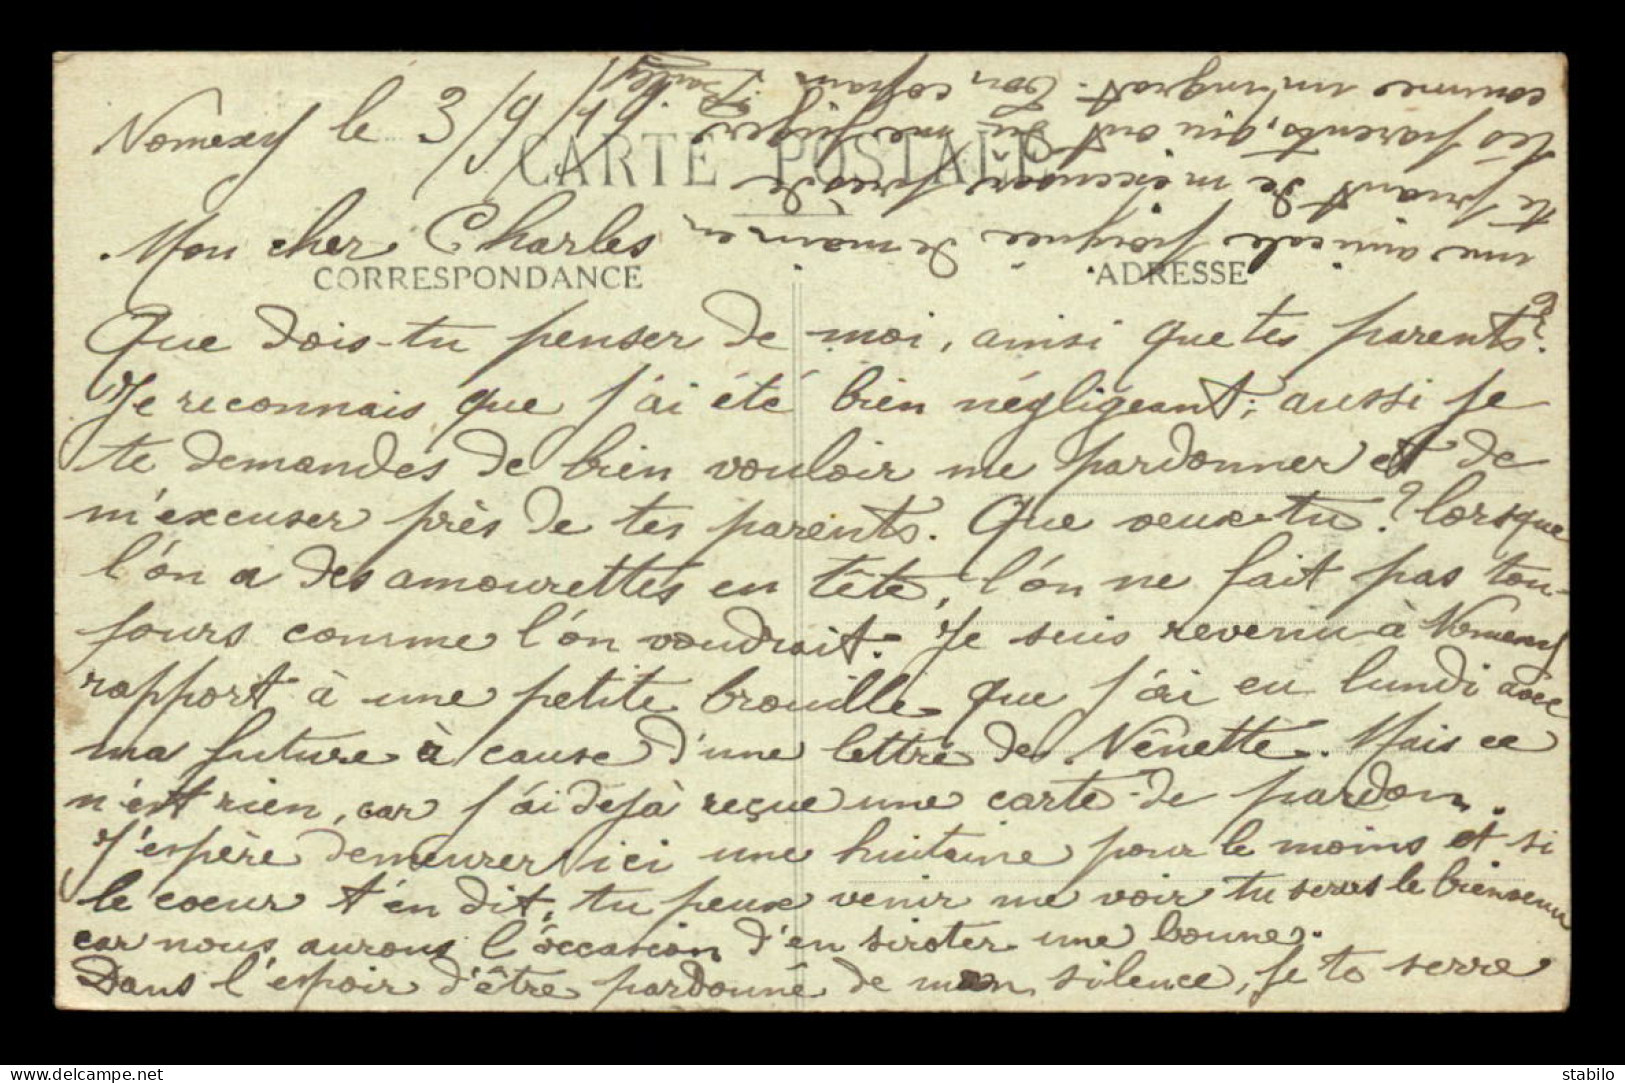 Nomexy le 3/9/19
CARTE POSTALE
Mon cher Charles
CORRESPONDANCE
ADRESSE
Que dois-tu penser de moi, ainsi que tes parents?
Je reconnais que j'ai été bien négligeant; aussi je
te demandes de bien vouloir me pardonner et de
m'excuser près de tes parents. Que veux-tu? lorsque
l'on a des amourettes en tête, l'on ne fait pas tou-
jours comme l'on voudrait. Je suis revenu à Nomexy
rapport à une petite brouille que j'ai eu lundi avec
ma future à cause d'une lettre de Nénette. Mais ce
n'est rien, car j'ai déjà reçue une carte de pardon.
J'espère demeurer ici une huitaine pour le moins et si
le coeur t'en dit, tu peux venir me voir tu seras le bienvenu
car nous aurons l'occasion d'en siroter une bonne.
Dans l'espoir d'être pardonné de mon silence, je te serre
une amicale poignée de main en
te priant de m'excuser près de
tes parents, qui ont du me juger
comme un ingrat. Ton copain
delcampe.net
stabilo